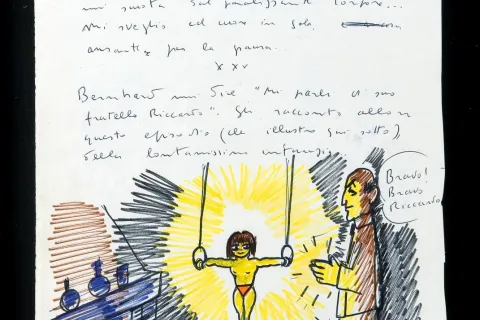 mi svela sul paralizzante torpore...
Mi sveglio col cuore in gola,
ansante per la paura...
x x x
Bernhard mi dice "Mi parli di suo
fratello Riccardo". Gli racconto allora
questo episodio (che illustro qui sotto),
della lontanissima infanzia
Bravo!
Bravo
Riccardo